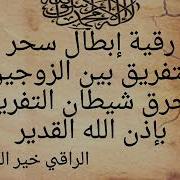 رقية إبطال سحر
تفريق بين الزوجين
حرق شيطان التفري
بإذن الله القدير
الراقي خير ال